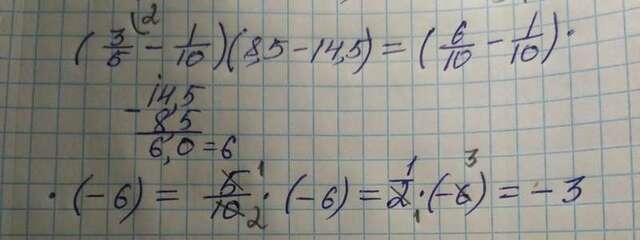 (3/5 \2 - 1/10)(8,5 - 14,5) = (6/10 - 1/10) ·
- 14,5
8 5
6,0 = 6
· (-6) = 5/10 1 2 · (-6) = 1/2 1 · (-6) 3 = -3